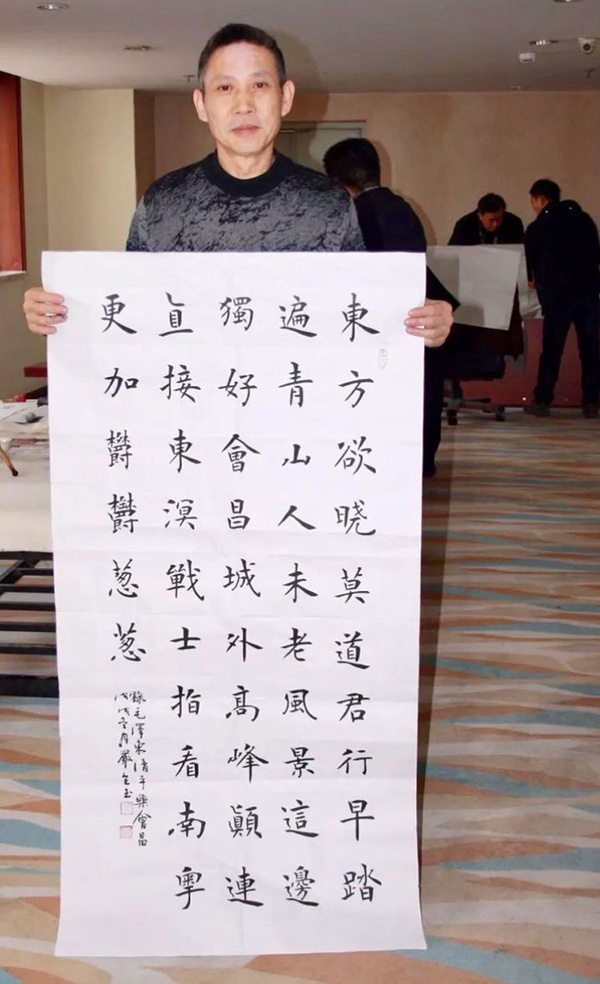 東方欲晓莫道君行早踏
遍青山人未老風景這邊
獨好會昌城外高峰顛連
直接東溟戰士指看南粵
更加欝欝葱葱
錄毛澤東清平樂會昌
戊戌冬月嚴玉